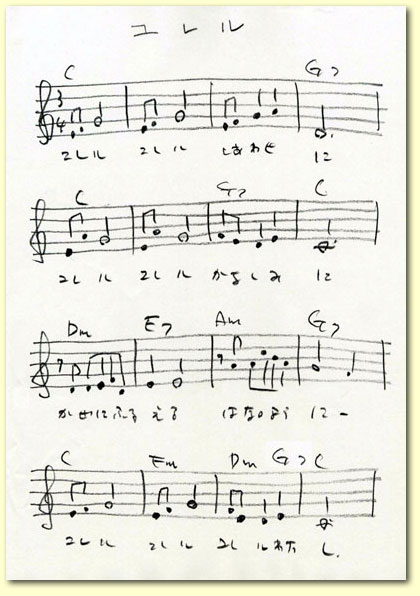 ユレル
C G7
3
4
ユレル ユレル しあわせ に
C G7 C
ユレル ユレル かなしみ に
Dm E7 Am G7
かぜにふるえる はなのよう にー
C Em Dm G7 C
ユレル ユレル ユレルわたし.